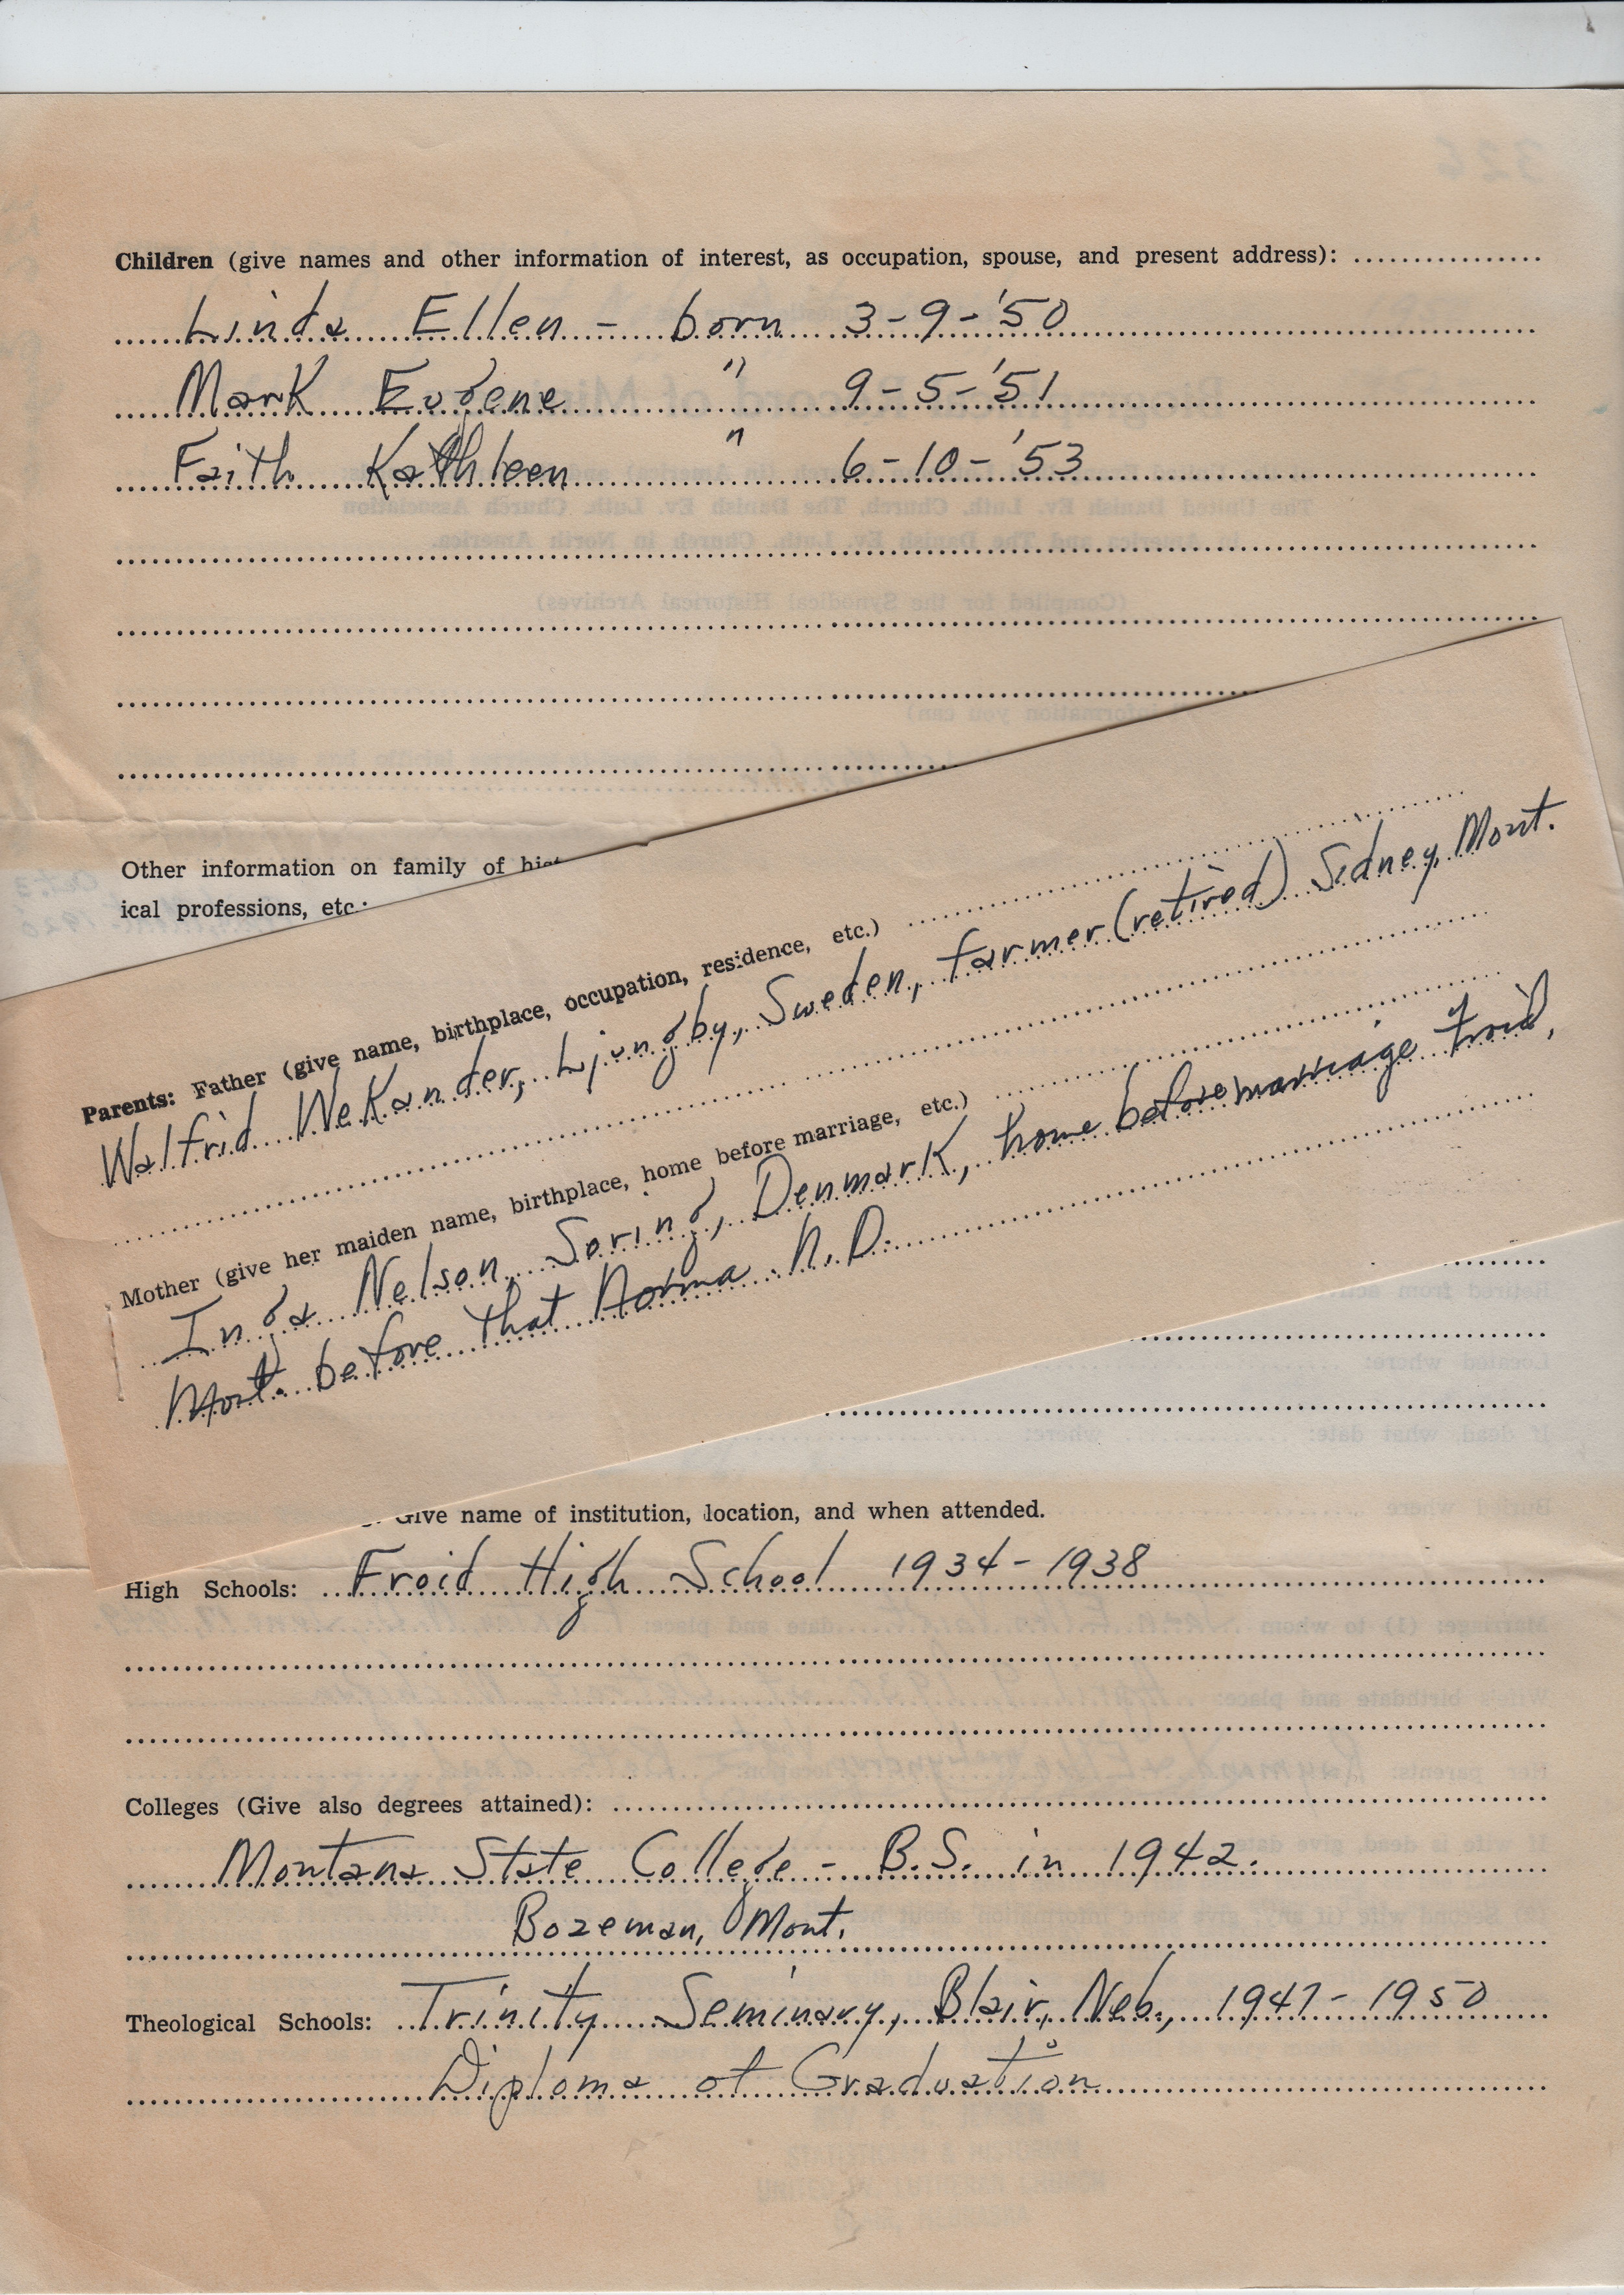 Children (give names and other information of interest, as occupation, spouse, and present address):
Linda Ellen - born 3-9-'50
Mark Eugene " 9-5-'51
Faith Kathleen " 6-10-'53
Other information on family of
ical professions, etc.:
Parents: Father (give name, birthplace, occupation, residence, etc.)
Walfrid WeKander, Ljungby, Sweden, farmer (retired) Sidney, Mont.
Mother (give her maiden name, birthplace, home before marriage, etc.)
Inga Nelson Soring, Denmark, home before marriage Froid,
Mont. before that Norma N.D.
Give name of institution, location, and when attended.
High Schools: Froid High School 1934-1938
Colleges (Give also degrees attained):
Montana State College - B.S. in 1942.
Bozeman, Mont.
Theological Schools: Trinity Seminary, Blair, Neb., 1947-1950
Diploma of Graduation